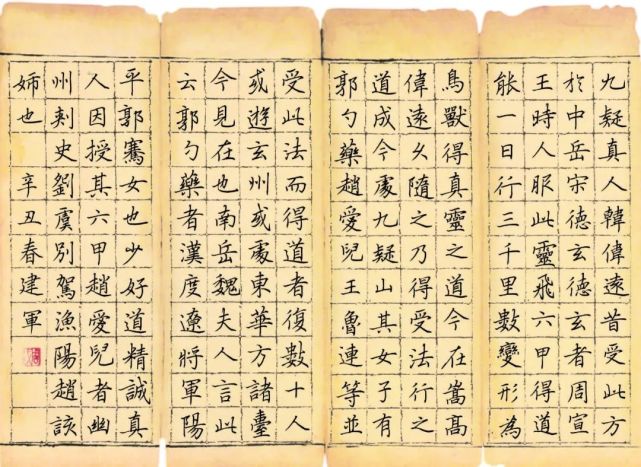 九疑真人韓偉遠昔受此方
於中岳宋德玄德玄者周宣
王時人服此靈飛六甲得道
能一日行三千里數變形為
鳥獸得真靈之道今在嵩高
偉遠久隨之乃得受法行之
道成今處九疑山其女子有
郭勺藥趙愛兒王魯連等並
受此法而得道者復數十人
或遊玄州或處東華方諸臺
今見在也南岳魏夫人言此
云郭勺藥者漢度遼將軍陽
平郭騫女也少好道精誠真
人因授其六甲趙愛兒者幽
州刾史劉虞別駕漁陽趙該
姊也 辛丑春建軍